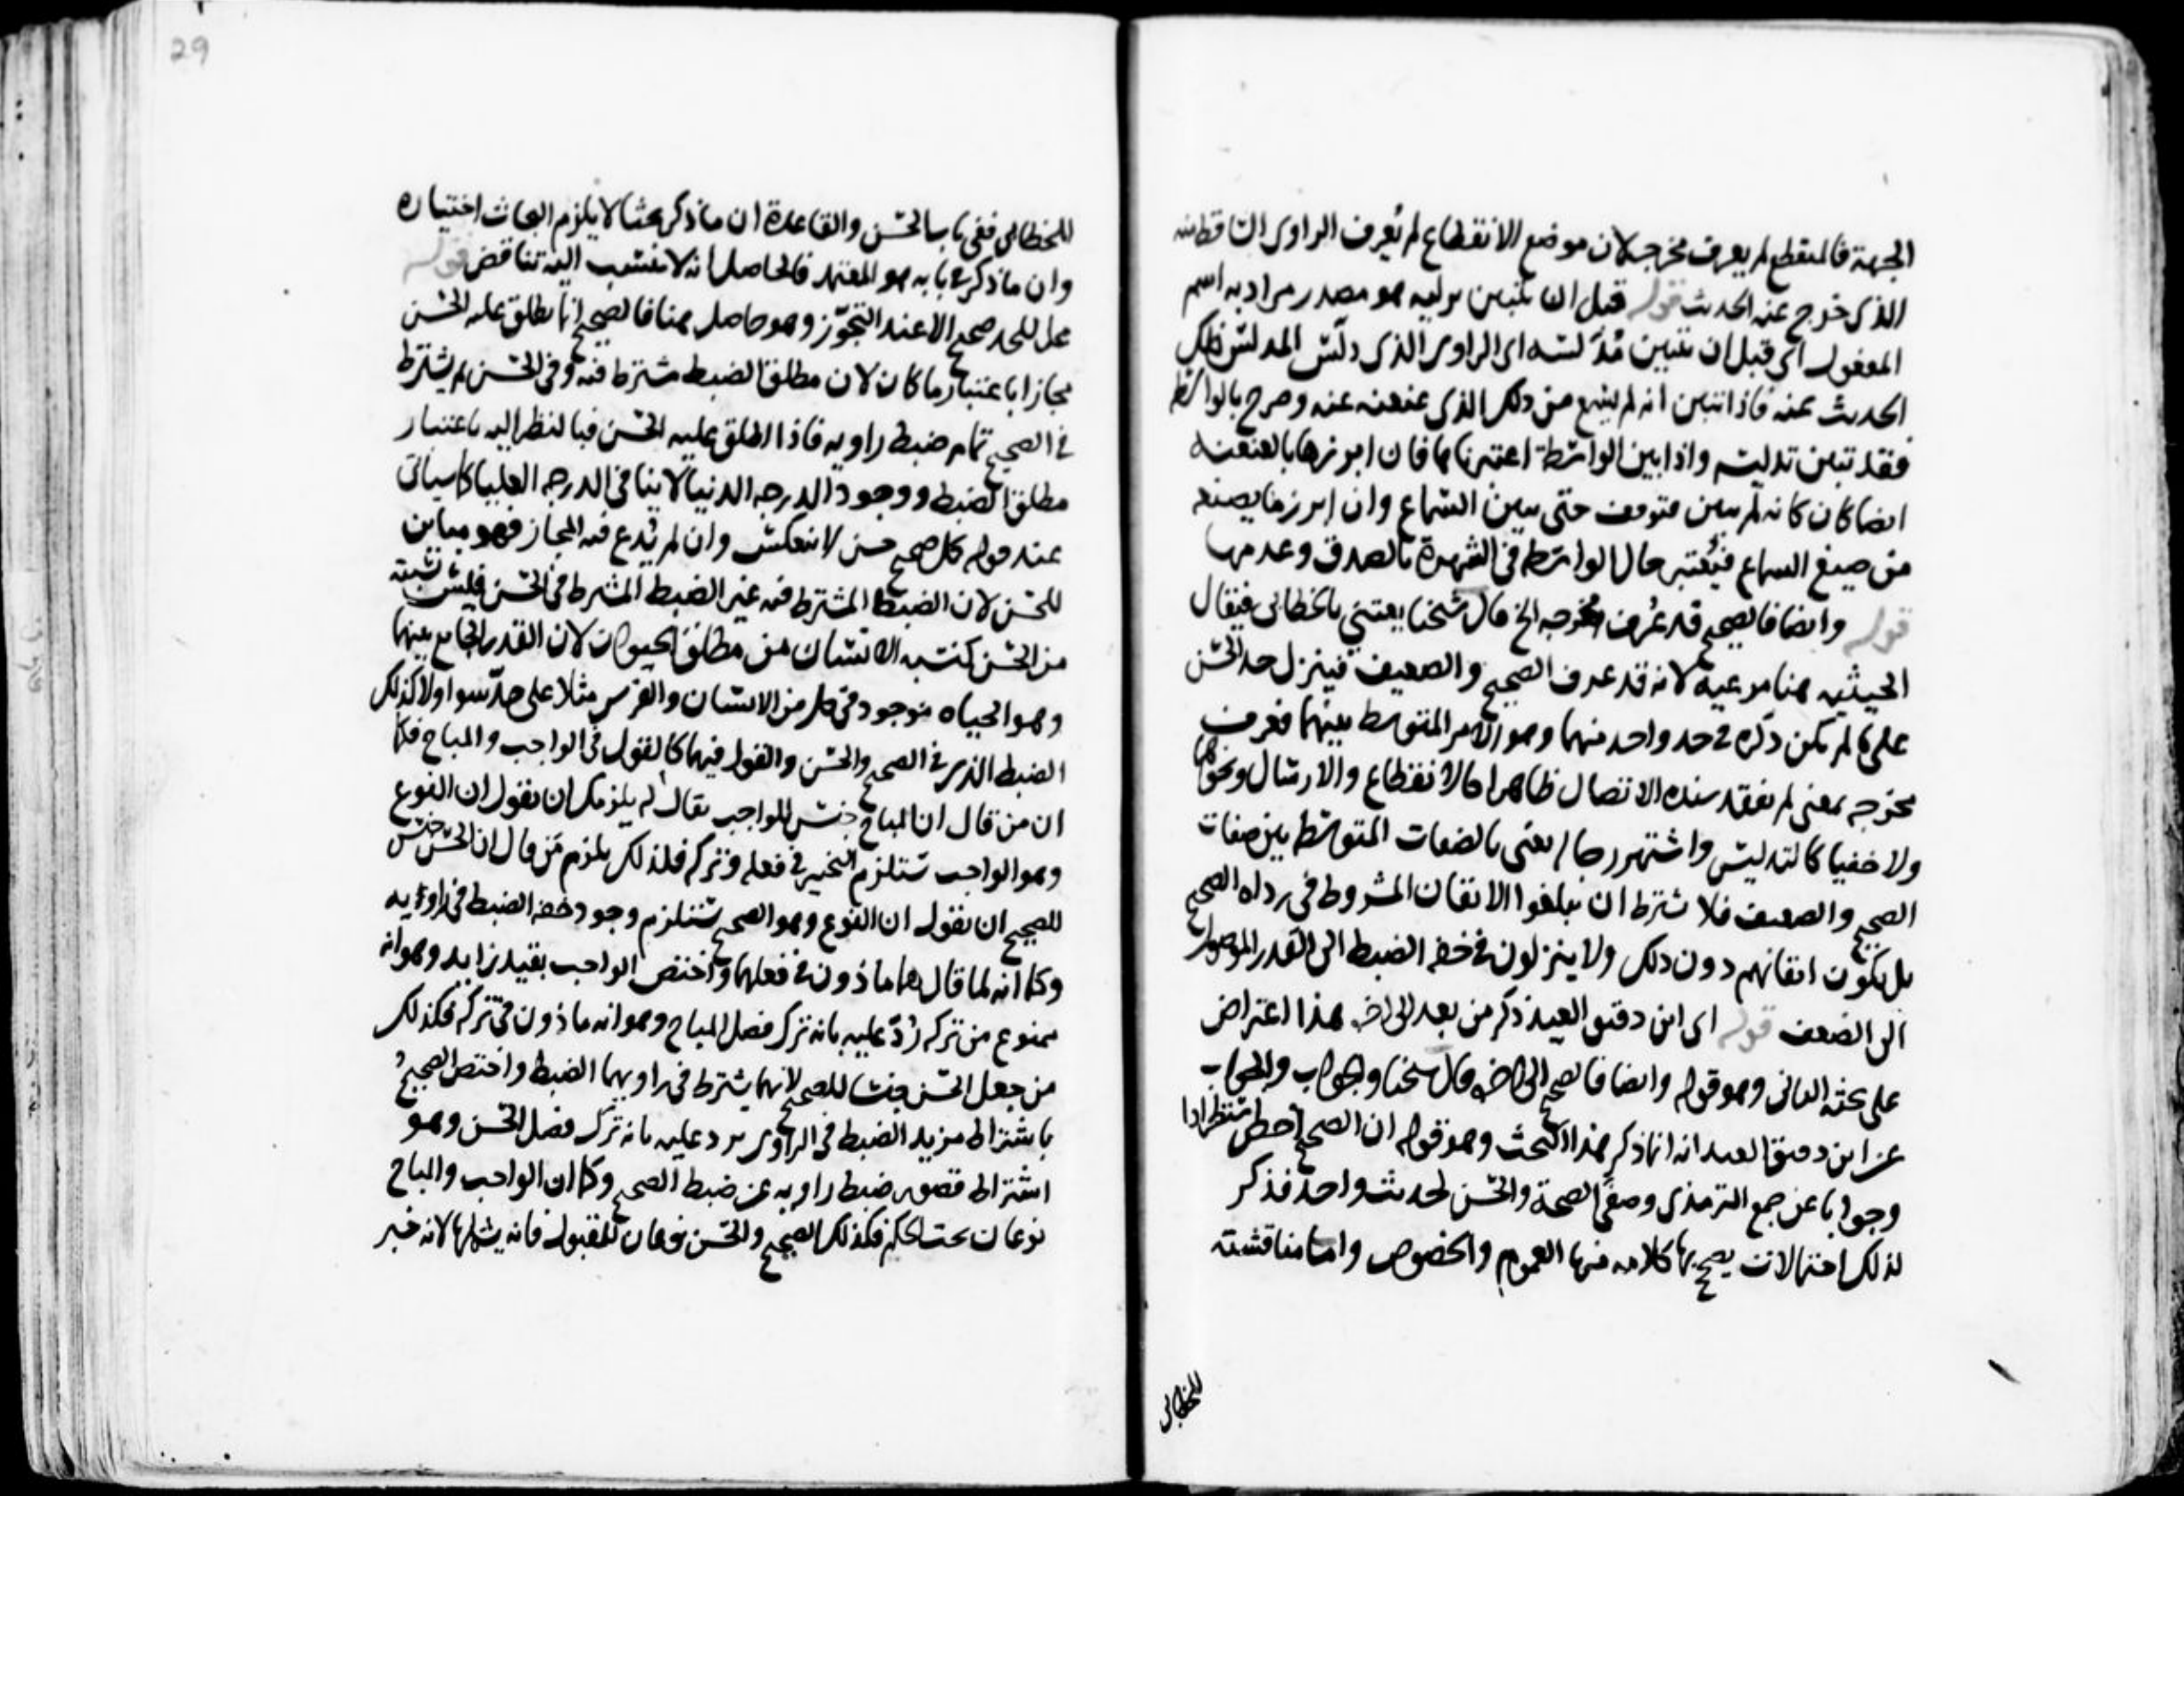 الجهة فالمنقطع لم يعرف مخرجه لان موضع الانقطاع لم يُعرف الراوى الساقط منه
الذى خرج عنه الحديث قوله قبل ان يتبين تدليسه هو مصدر مراد به اسم
المفعول اى قبل ان يتبين مُدَلَّسه اى الراوى الذى دلّس المدلس ذلك
الحديث عنه فاذا تبين انه لم يسمع من ذلك الذى عنعنه عنه وصرح بالواسطة
فقد تبين تدليسه واذا بين الواسطة اعتبرناها فان ابرزها بالعنعنة
ايضا كان كانه لم يبين فتوقف حتى يبين السماع وان ابرزها بصيغة
من صيغ السماع فيُعتبر حال الواسطة فى الشهرة بالصدق وعدمها
قوله وايضا فالصحيح قد عُرف مخرجه الخ قال شيخنا يعتني بالخطابى فيقال
الحيثيه هنا مرعية لانه قد عرف الصحيح والضعيف فينزل حد الحسن
على ما لم يكن ذكره فى حد واحد منهما وهو الامر المتوسط بينهما فعرف
مخرجه بمعنى لم يفقد سنده الاتصال ظاهرا كالانقطاع والارسال ونحوها
ولا خفيا كالتدليس واشتهر رجاله يعنى بالصفات المتوسطة بين صفات
الصحيح والضعيف فلا يشترط ان يبلغوا الاتقان المشروط فى رواه الصحيح
بل يكون اتقانهم دون ذلك ولا ينزلون فى خفة الضبط الى القدر الموصل
الى الضعف قوله اى ابن دقيق العيد ذكر من بعد الى اخره هذا اعتراض
على بحثه الثانى وهو قوله وايضا فالصحيح الى اخره قال شيخنا والجواب
عن ابن دقيق العيد انه انما ذكر هذا البحث وهو قوله ان الصحيح اخص استطرادا
وجوابا عن جمع الترمذى وصفَى الصحة والحسن لحديث واحد فذكر
لذلك احتمالات يصح بها كلامه منها العموم والخصوص واما مناقشته
للخطابى
29
للخطابى ففى باب الحسن والقاعدة ان ما ذكر بحثا لا يلزم الباحث اختياره
وان ما ذكر فى بابه هو المعتمد فالحاصل انه لا ينسب اليه تناقض قوله
مجازا باعتبار ما كان لان مطلق الضبط مشترط فيه وفى الحسن لم يشترط
فى الصحيح تمام ضبط راويه فاذا اطلق عليه الحسن فبالنظر اليه باعتبار
مطلق الضبط ووجود الدرجه الدنيا لا ينافى الدرجه العليا كما سياتى
عند قوله كل صحيح حسن لا ينعكس وان لم يُدع فيه المجاز فهو مباين
للحسن لان الضبط المشترط فيه غير الضبط المشرط فى الحسن فليس نسبته
من الحسن كنسبه الانسان من مطلق الحيوان لان القدر الجامع بينهما
وهو الحياه موجود فى كل من الانسان والفرس مثلا على حدّ سوا ولا كذلك
الضبط الذى فى الصحيح والحسن والقول فيهما كالقول فى الواجب والمباح فكما
ان من قال ان المباح جنس للواجب يقال له يلزمك ان تقول ان النوع
وهو الواجب يستلزم التخيير فى فعله وتركه فلذلك يلزم مَن قال ان الحسن جنس
للصحيح ان يقول ان النوع وهو الصحيح يستلزم وجود خفة الضبط فى راويه
وكما انه لما قال هما ماذون فى فعلهما واختص الواجب بقيد زايد وهو انه
ممنوع من تركه رُدّ عليه بانه ترك فصل المباح وهو انه ماذون فى تركه فكذلك
من جعل الحسن جنسا للصحيح لانهما يشترط فى راويهما الضبط واختص الصحيح
باشتراط مزيد الضبط فى الراوى يرد عليه بانه ترك فصل الحسن وهو
اشتراط قصور ضبط راويه عن ضبط الصحيح وكما ان الواجب والمباح
نوعان تحت الحكم فكذلك الصحيح والحسن نوعان للمقبول فانه يشملها لانه خبر